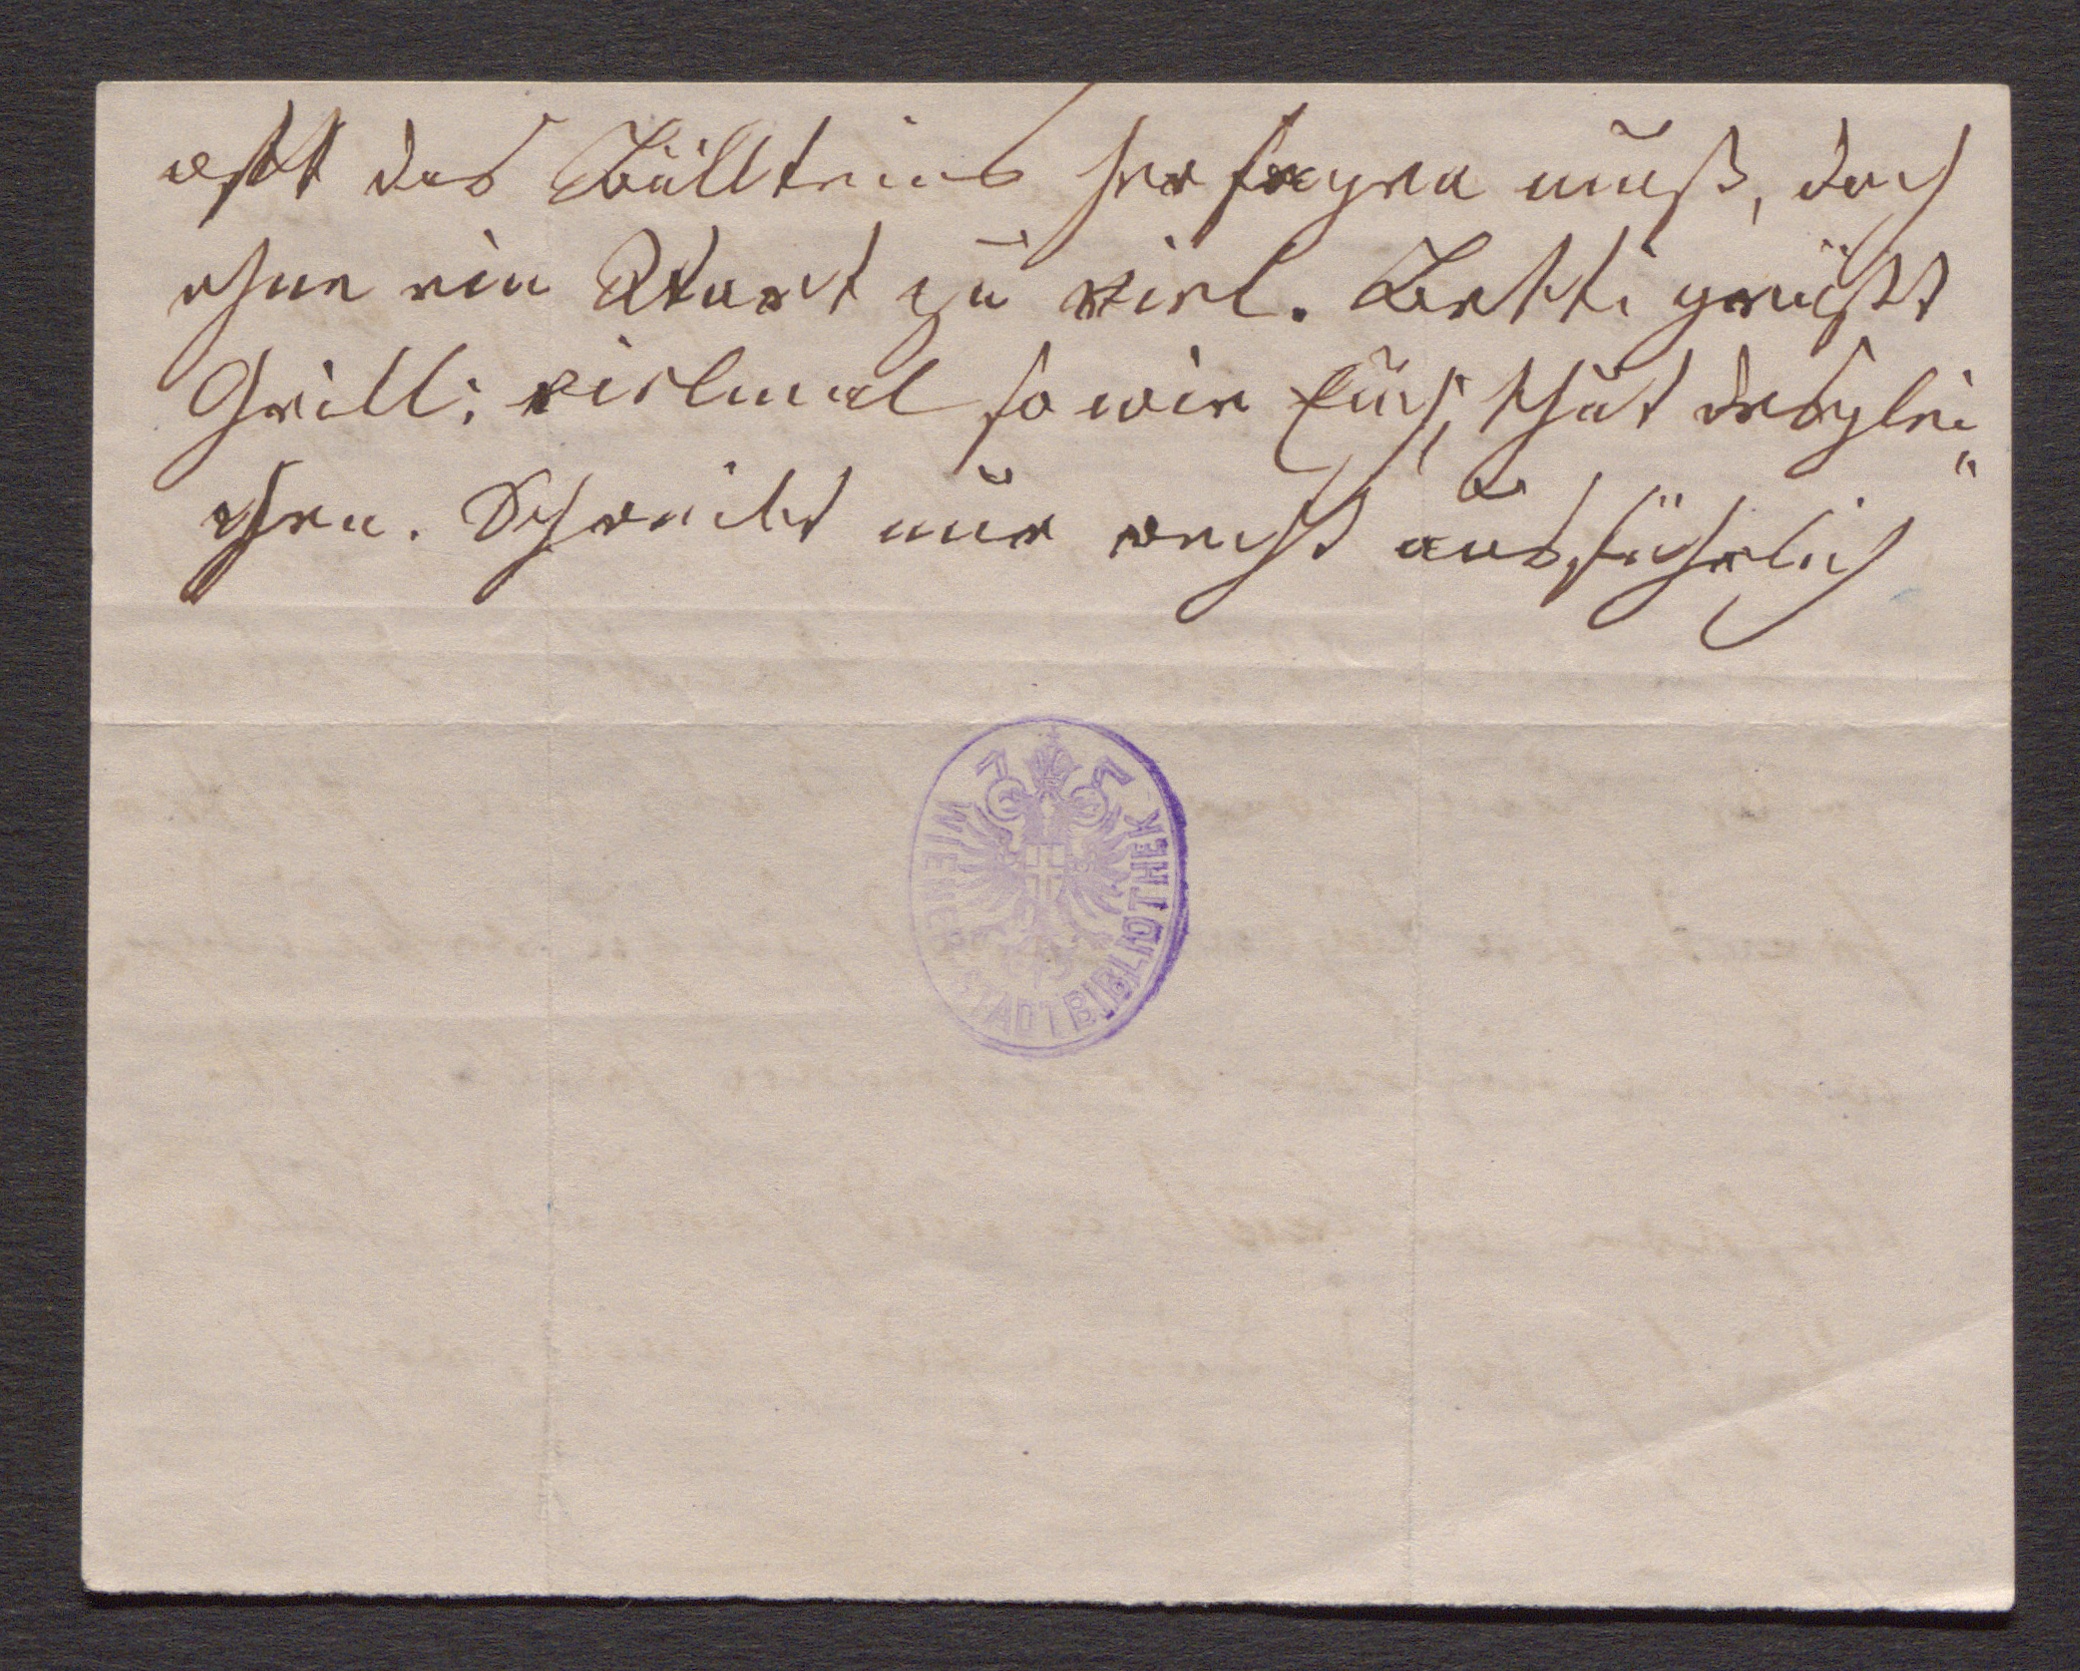 oft das Bülletins hersagen muß, doch
ohne ein Wort zu viel. Betti grüßt
Grilli vielmal so wie Euch, thut desglei„
chen. Schreibt nur recht ausführlich
WIENER STADTBIBLIOTHEK